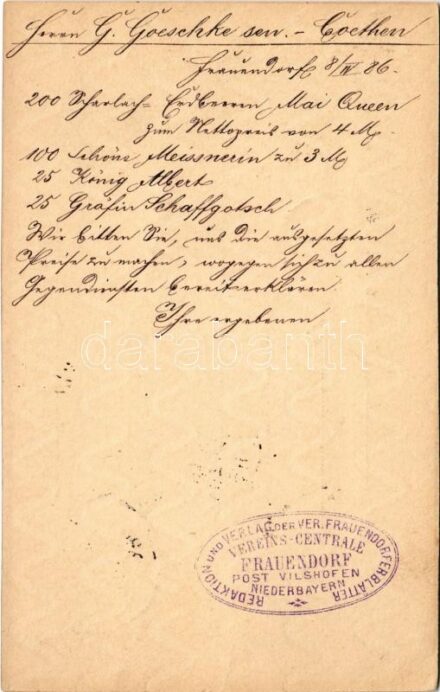 Herrn G. Goeschke sen. - Coethen
Frauendorf 8/IV 86.
200 Scharlach= Erdbeeren Mai Queen
zum Nettopreis von 4 M.
100 Schöne Meissnerin zu 3 M
25 König Albert
25 Gräfin Schaffgotsch
Wir bitten Sie, uns die ausgesetzten
Preise zu machen, wogegen sich zu allen
Gegendiensten bereit erklären
Ihre ergebenen
darabanth
REDAKTION UND VERLAG DER VER. FRAUENDORFER BLÄTTER
VEREINS-CENTRALE
FRAUENDORF
POST VILSHOFEN
NIEDERBAYERN